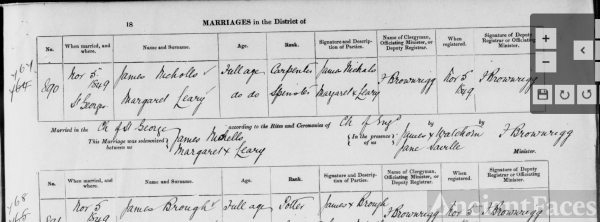 18 MARRIAGES in the District of
No. When married, and where. Name and Surname. Age. Rank. Signature and Description of Parties. Name of Clergyman, Officiating Minister, or Deputy Registrar. When registered. Signature of Deputy Registrar or Minister.
890 Nov 5 1849 St Georges
James Nicholls Full age Carpenter James Nicholls F Brownrigg Nov 5 1849 F Brownrigg
Margaret Leary do do Spinster Margaret x Leary
Married in the Ch of St George according to the Rites and Ceremonies of Ch of Engd
This Marriage was solemnized between us James Nicholls Margaret x Leary (In the presence of us James x Watchorn by Jane Saville by F Brownrigg Minister.
No. When married, and where. Name and Surname. Age. Rank. Signature and Description of Parties. Name of Clergyman, Officiating Minister, or Deputy Registrar. When registered. Signature of Deputy Registrar or Minister.
891 Nov 5 1849 James Brough Full age Potter James x Brough F Brownrigg Nov 5 1849 F Brownrigg
AncientFaces